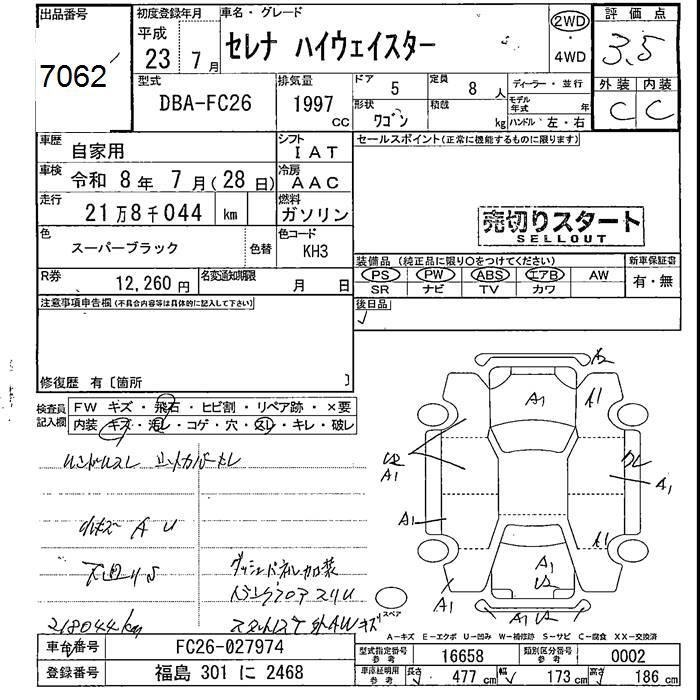 出品番号
7062
初度登録年月
平成
23 7月
車名・グレード
セレナ ハイウェイスター
2WD
・
4WD
評価点
3.5
外装 内装
C C
型式
DBA-FC26
排気量
1997
CC
ドア
5
定員
8 人
ディーラー・並行
形状
ワゴン
積載
kg
モデル年式 年
ハンドル 左・右
車歴
自家用
シフト
IAT
車検
令和 8年 7月(28日)
冷房
AAC
走行
21万8千044 km
燃料
ガソリン
色
スーパーブラック
色替
色コード
KH3
R券
、 12,260円
名変通知期限
月 日
セールスポイント(正常に機能するものに限ります)
売切りスタート
SELLOUT
装備品(純正品に限り○をつけてください)
PS PW ABS エアB AW
SR ナビ TV カワ
新車保証書
有・無
後日品
注意事項申告欄(不具合内容等は具体的に記入して下さい)
修復歴 有〔箇所 〕
検査員
記入欄
FW キズ・飛石・ヒビ割・リペア跡・×要
内装 キズ・汚レ・コゲ・穴・スレ・キレ・破レ
ハンドルスレ
A U
ダッシュパネル加装
トランクフロアスリU
キズ
218044km
A2
A1
A1
U2
A1
A1
A1
A1
A1
A1
U2
A1 U2
スペア
A-キズ E-エクボ U-凹み W-補修跡 S-サビ C-腐食 XX-交換済
車台番号
FC26-027974
登録番号
福島 301 に 2468
型式指定番号
参考
16658
類別区分番号
参考
0002
車庫証明用
参考
長さ 477cm
幅 173cm
高さ 186cm